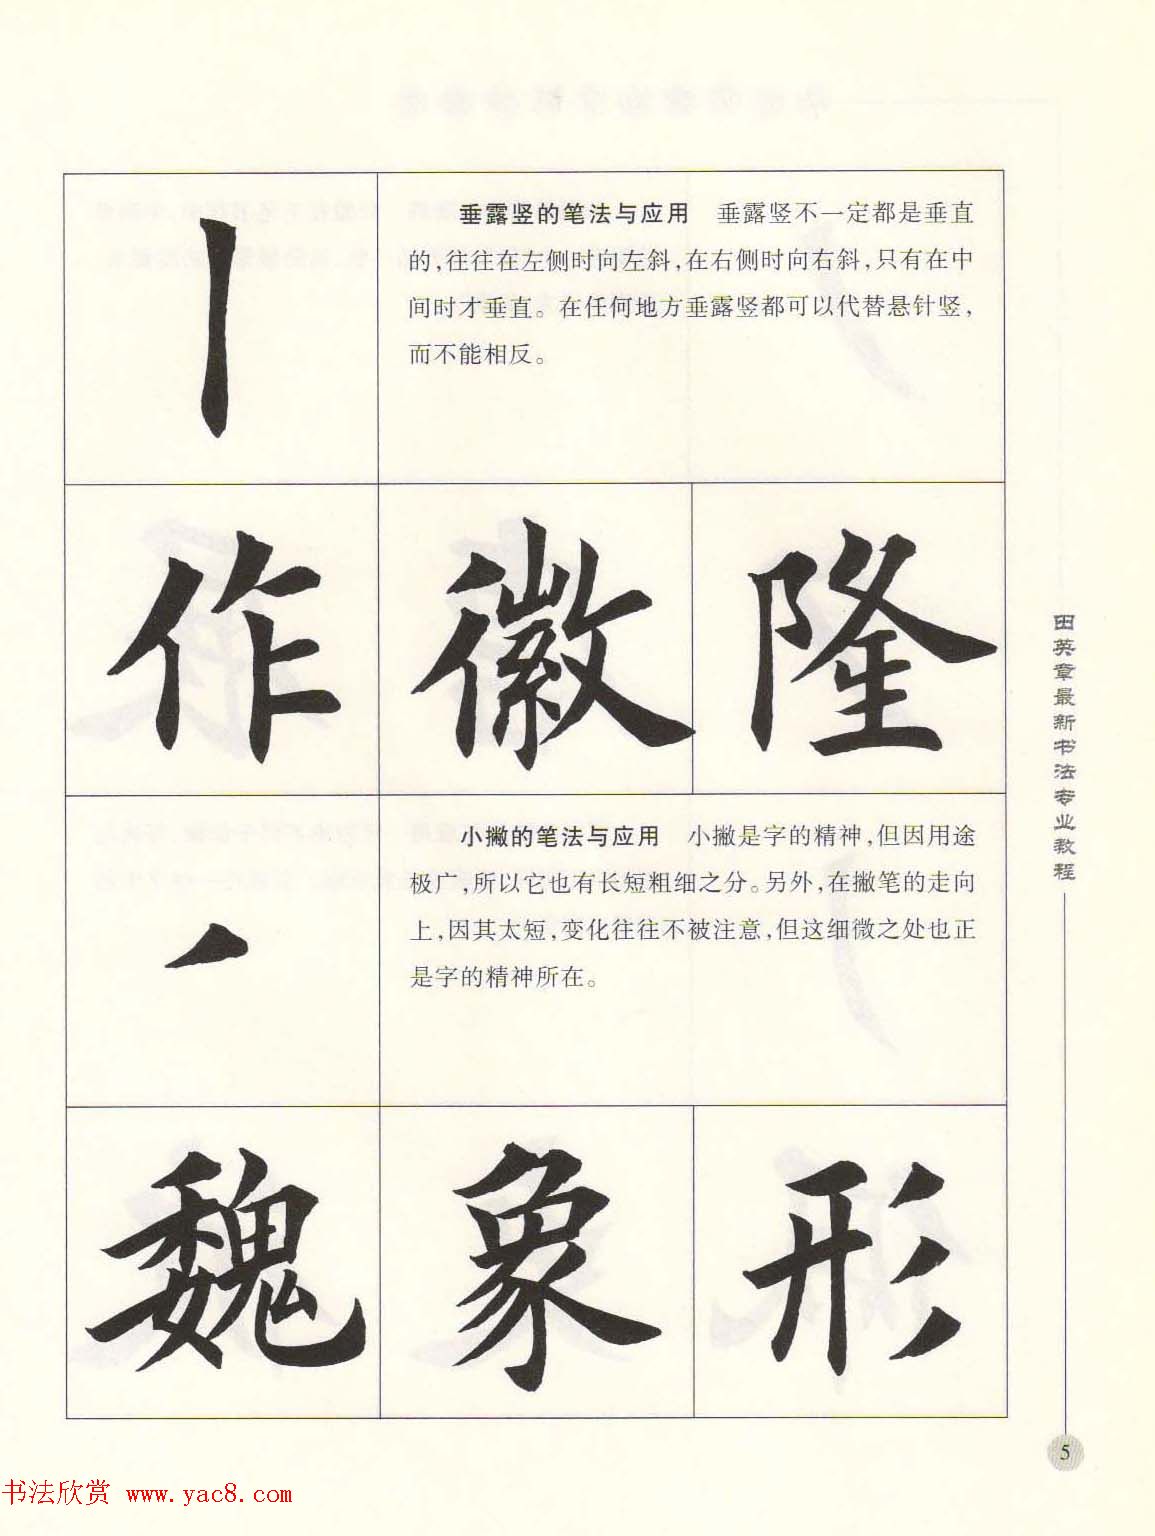 垂露竖的笔法与应用　垂露竖不一定都是垂直
的,往往在左侧时向左斜,在右侧时向右斜,只有在中
间时才垂直。在任何地方垂露竖都可以代替悬针竖,
而不能相反。
作 徽 隆
小撇的笔法与应用　小撇是字的精神,但因用途
极广,所以它也有长短粗细之分。另外,在撇笔的走向
上,因其太短,变化往往不被注意,但这细微之处也正
是字的精神所在。
魏 象 形
田英章最新书法专业教程
5
书法欣赏 www.yac8.com